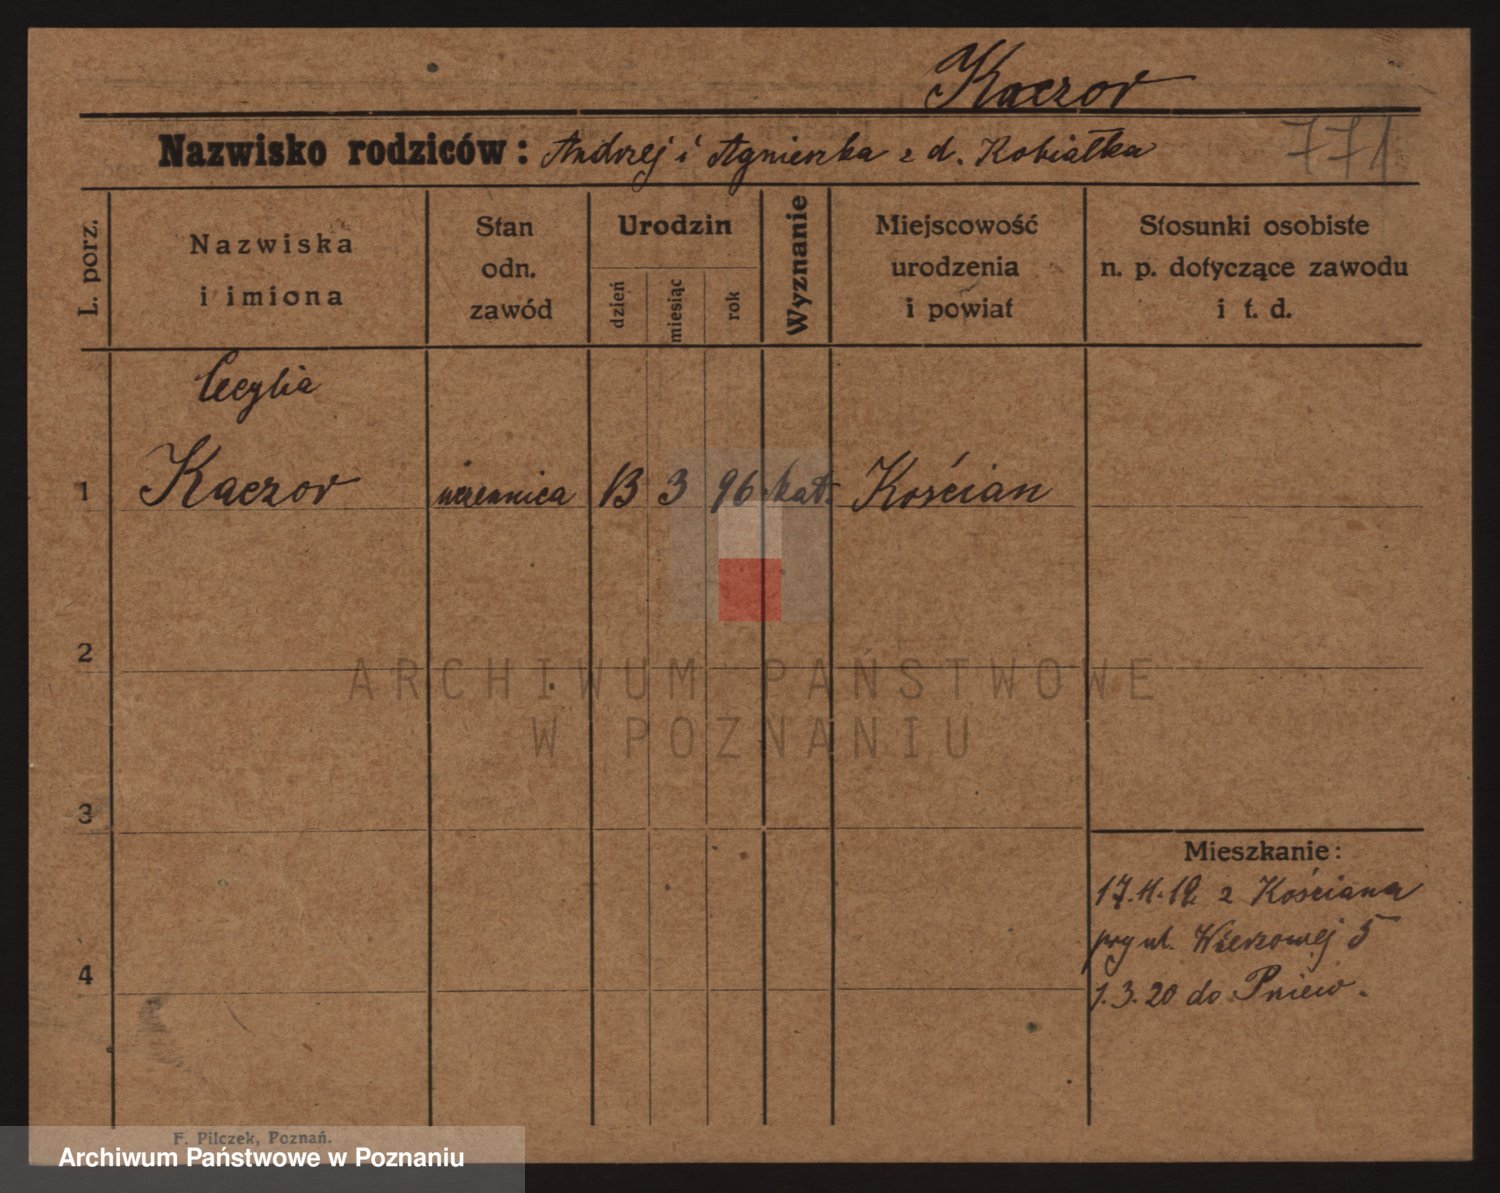 Kaczor
Nazwisko rodziców: Andrzej i Agnieszka z d. Kobiałka
771
L. porz.
Nazwiska
i imiona
Stan
odn.
zawód
Urodzin
dzień
miesiąc
rok
Wyznanie
Miejscowość
urodzenia
i powiat
Stosunki osobiste
n. p. dotyczące zawodu
i t. d.
Cecylia
1 Kaczor uczennica 13 3 96 kat. Kościan
2
3
4
Mieszkanie:
17.11.19 z Kościana
przy ul. 5
1.3.20 do Pniew.
ARCHIWUM PAŃSTWOWE
W POZNANIU
F. Pilczek, Poznań.
Archiwum Państwowe w Poznaniu